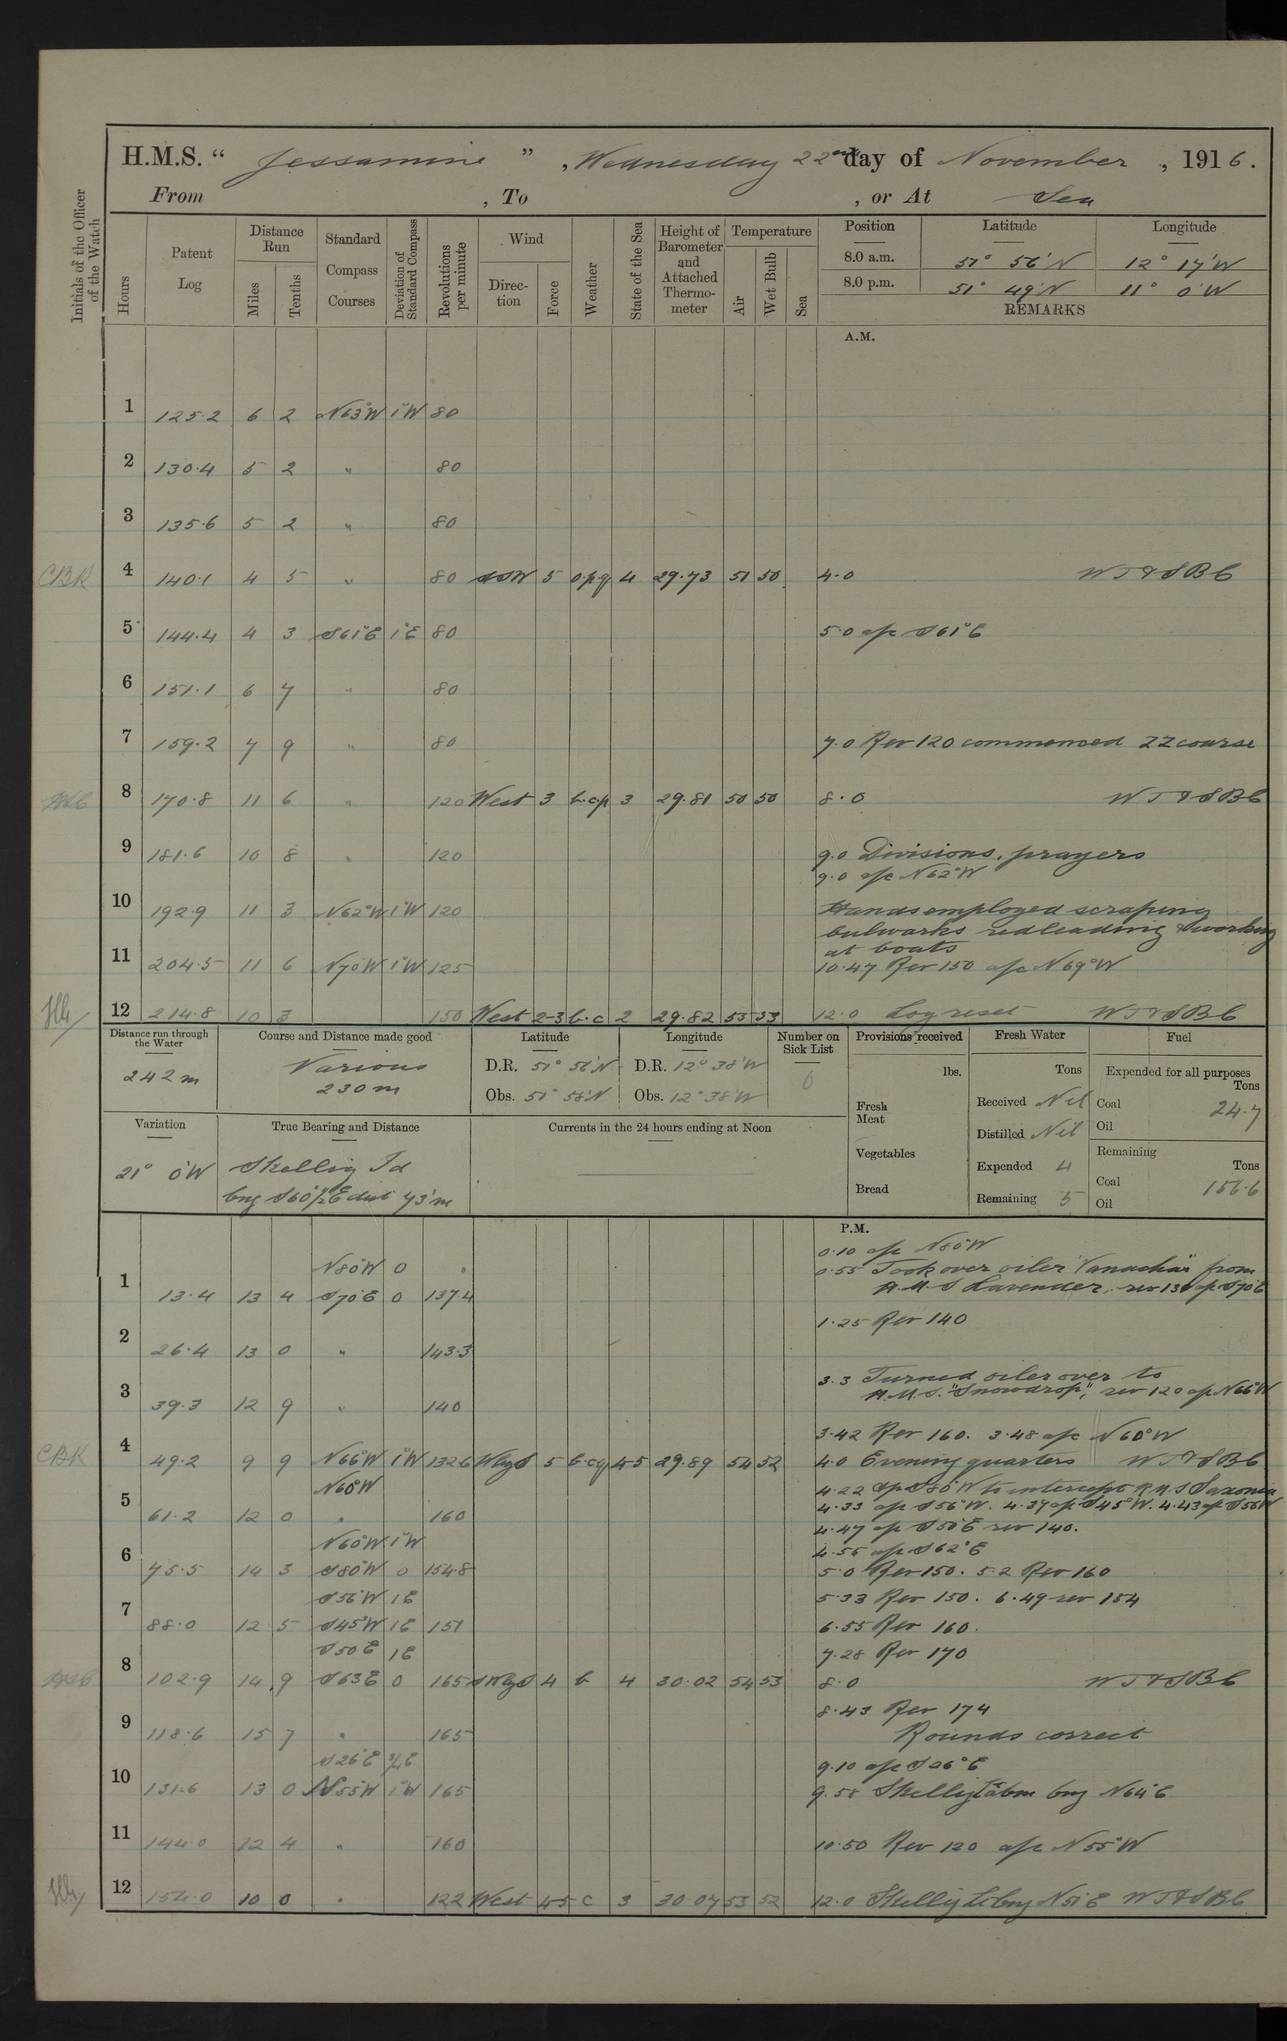 H.M.S. “ Jessamine ” , Wednesday 22nd day of November , 1916.
From , To , or At Sea
Initials of the Officer of the Watch
Hours
Patent Log
Distance Run
Miles Tenths
Standard Compass Courses
Deviation of Standard Compass
Revolutions per minute
Wind
Direction Force
Weather
State of the Sea
Height of Barometer and Attached Thermometer
Temperature
Air Wet Bulb Sea
Position Latitude Longitude
8.0 a.m. 51° 56' N 12° 17' W
8.0 p.m. 51° 49' N 11° 0' W
REMARKS
A.M.
1 125.2 6 2 N63°W 1°W 80
2 130.4 5 2 " 80
3 135.6 5 2 " 80
CBK 4 140.1 4 5 " 80 SSW 5 o.p.q 4 29.73 51 50 4.0 WT&SBC
5 144.4 4 3 S61°E 1°E 80 5.0 a/c S61°E
6 151.1 6 7 " 80
7 159.2 7 9 " 80 7.0 Rev 120 commenced ZZ course
8 170.8 11 6 " 120 West 3 b.c.p 3 29.81 50 50 8.0 WT&SBC
9 181.6 10 8 " 120 9.0 Divisions. prayers
9.0 a/c N62°W
10 192.9 11 3 N62°W 1°W 120 Hands employed scraping
bulwarks redleading & working
at boats
11 204.5 11 6 N70°W 1°W 125 10.47 Rev 150 a/c N69°W
12 214.8 10 3 150 West 2-3 b.c 2 29.82 53 53 12.0 Log reset WT&SBC
Distance run through the Water
242 m
Course and Distance made good
Various
230 m
Latitude
D.R. 51° 56' N
Obs. 51° 58' N
Longitude
D.R. 12° 38' W
Obs. 12° 38' W
Number on Sick List
0
Provisions received
lbs.
Fresh Meat
Vegetables
Bread
Fresh Water
Tons
Received Nil
Distilled Nil
Expended 4
Remaining 5
Fuel
Expended for all purposes
Tons
Coal 24.7
Oil
Remaining
Tons
Coal 156.6
Oil
Variation
21° 0' W
True Bearing and Distance
Skellig Id
brg S60½°E dist 73' m
Currents in the 24 hours ending at Noon
P.M.
0.10 a/c N80°W
N80°W 0 0.55 Took over oiler "Vanacha" from
1 13.4 13 4 S70°E 0 137.4 H.M.S Lavender. rev 130 a/c S70°E
1.25 Rev 140
2 26.4 13 0 " 143.3
3.3 Turned oiler over to
3 39.3 12 9 " 140 H.M.S. "Snowdrop", rev 120 a/c N66°W
3.42 Rev 160. 3.48 a/c N60°W
CBK 4 49.2 9 9 N66°W 1°W 132.6 WbyS 5 b.c.q 4-5 29.89 54 52 4.0 Evening quarters WT&SBC
N60°W 4.22 a/c S80°W to intercept R.M.S Saxonia
5 61.2 12 0 " 160 4.33 a/c S56°W. 4.37 a/c S45°W. 4.43 a/c S56W
4.47 a/c S50°E rev 140.
N60°W 1°W 4.56 a/c S62°E
6 75.5 14 3 S80°W 0 154.8 5.0 Rev 150. 5.2 Rev 160
S56°W 1E 5.33 Rev 150. 6.49 rev 154
7 88.0 12 5 S45°W 1E 151 6.55 Rev 160.
S50E 1E 7.28 Rev 170
8 102.9 14 9 S63E 0 165 SWbyS 4 b 4 30.02 54 53 8.0 WT&SBC
8.43 Rev 174
9 118.6 15 7 " 165 Rounds correct
S26°E ¾E 9.10 a/c S26°E
10 131.6 13 0 N55°W 1°W 165 9.58 Skellig brg N64°E
11 144.0 12 4 " 160 10.50 Rev 120 a/c N55°W
12 154.0 10 0 " 122 West 4-5 c 3 30.07 53 52 12.0 Skellig Lt brg N51°E WT&SBC